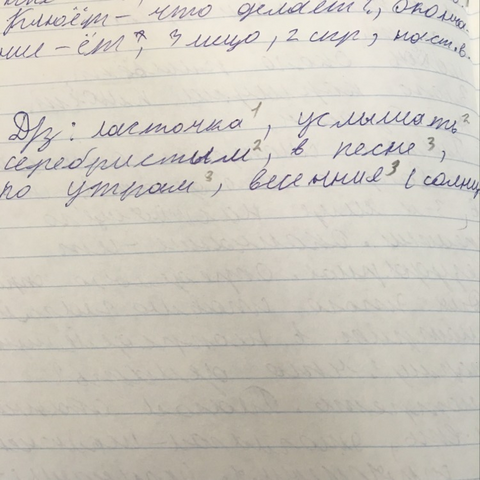 плюёт - что делает?, оконча-
ние - ёт, 3 лицо, 2 спр, наст.в.
Д/з: ласточка¹, услышать²
серебристым², в песне³,
по утрам³, весенние³ (солнц